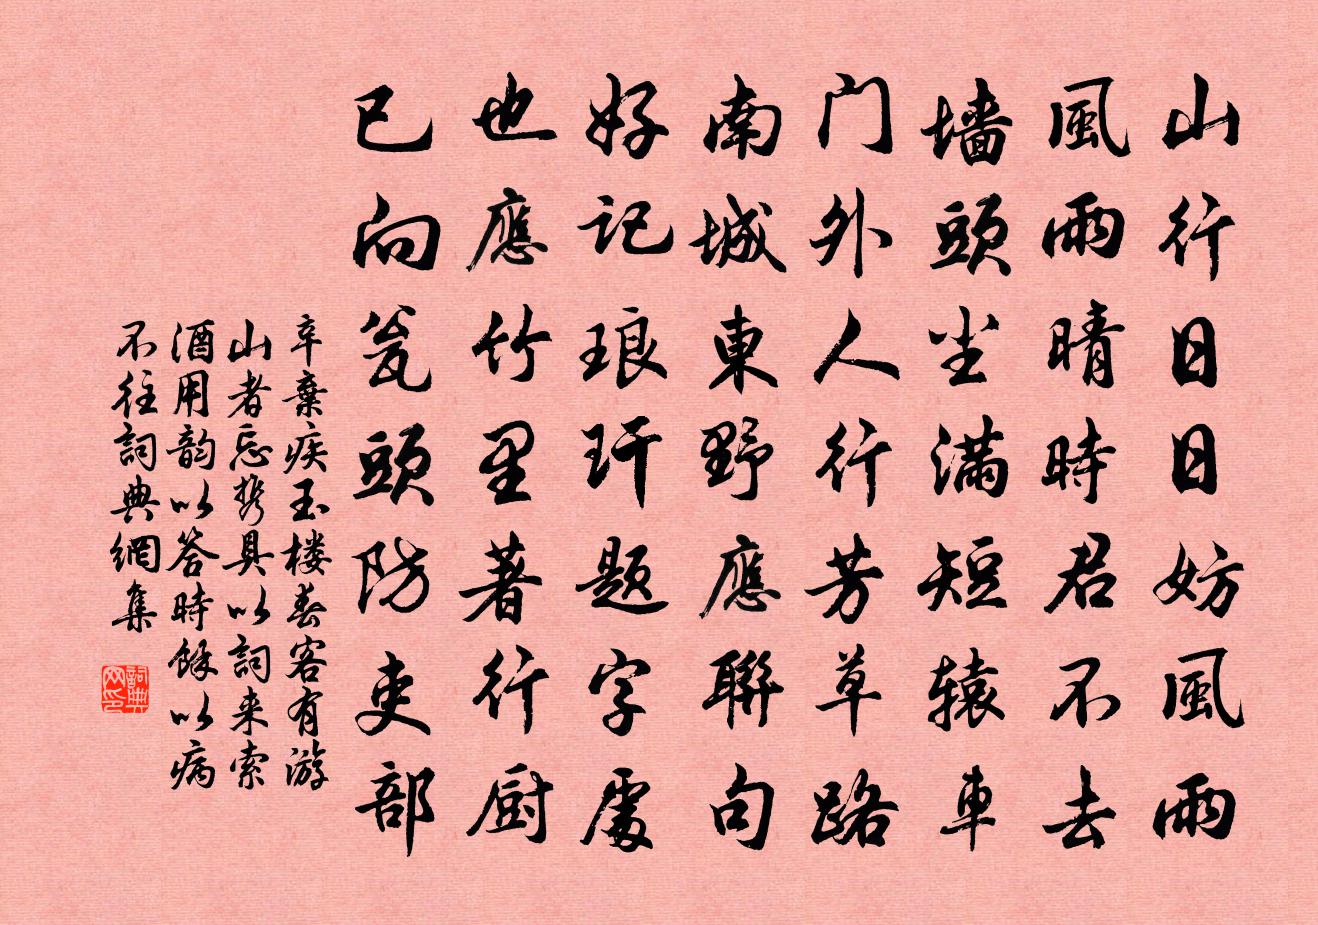 山行日日妨風雨
風雨晴時君不去
墙頭尘满短辕車
门外人行芳草路
南城東野應聯句
好記琅玕题字處
也應竹里著行厨
已向瓮頭防吏部
辛棄疾玉楼春客有游
山者忘携具以詞来索
酒用韵以答時餘以病
不往詞典網集
詞典網印